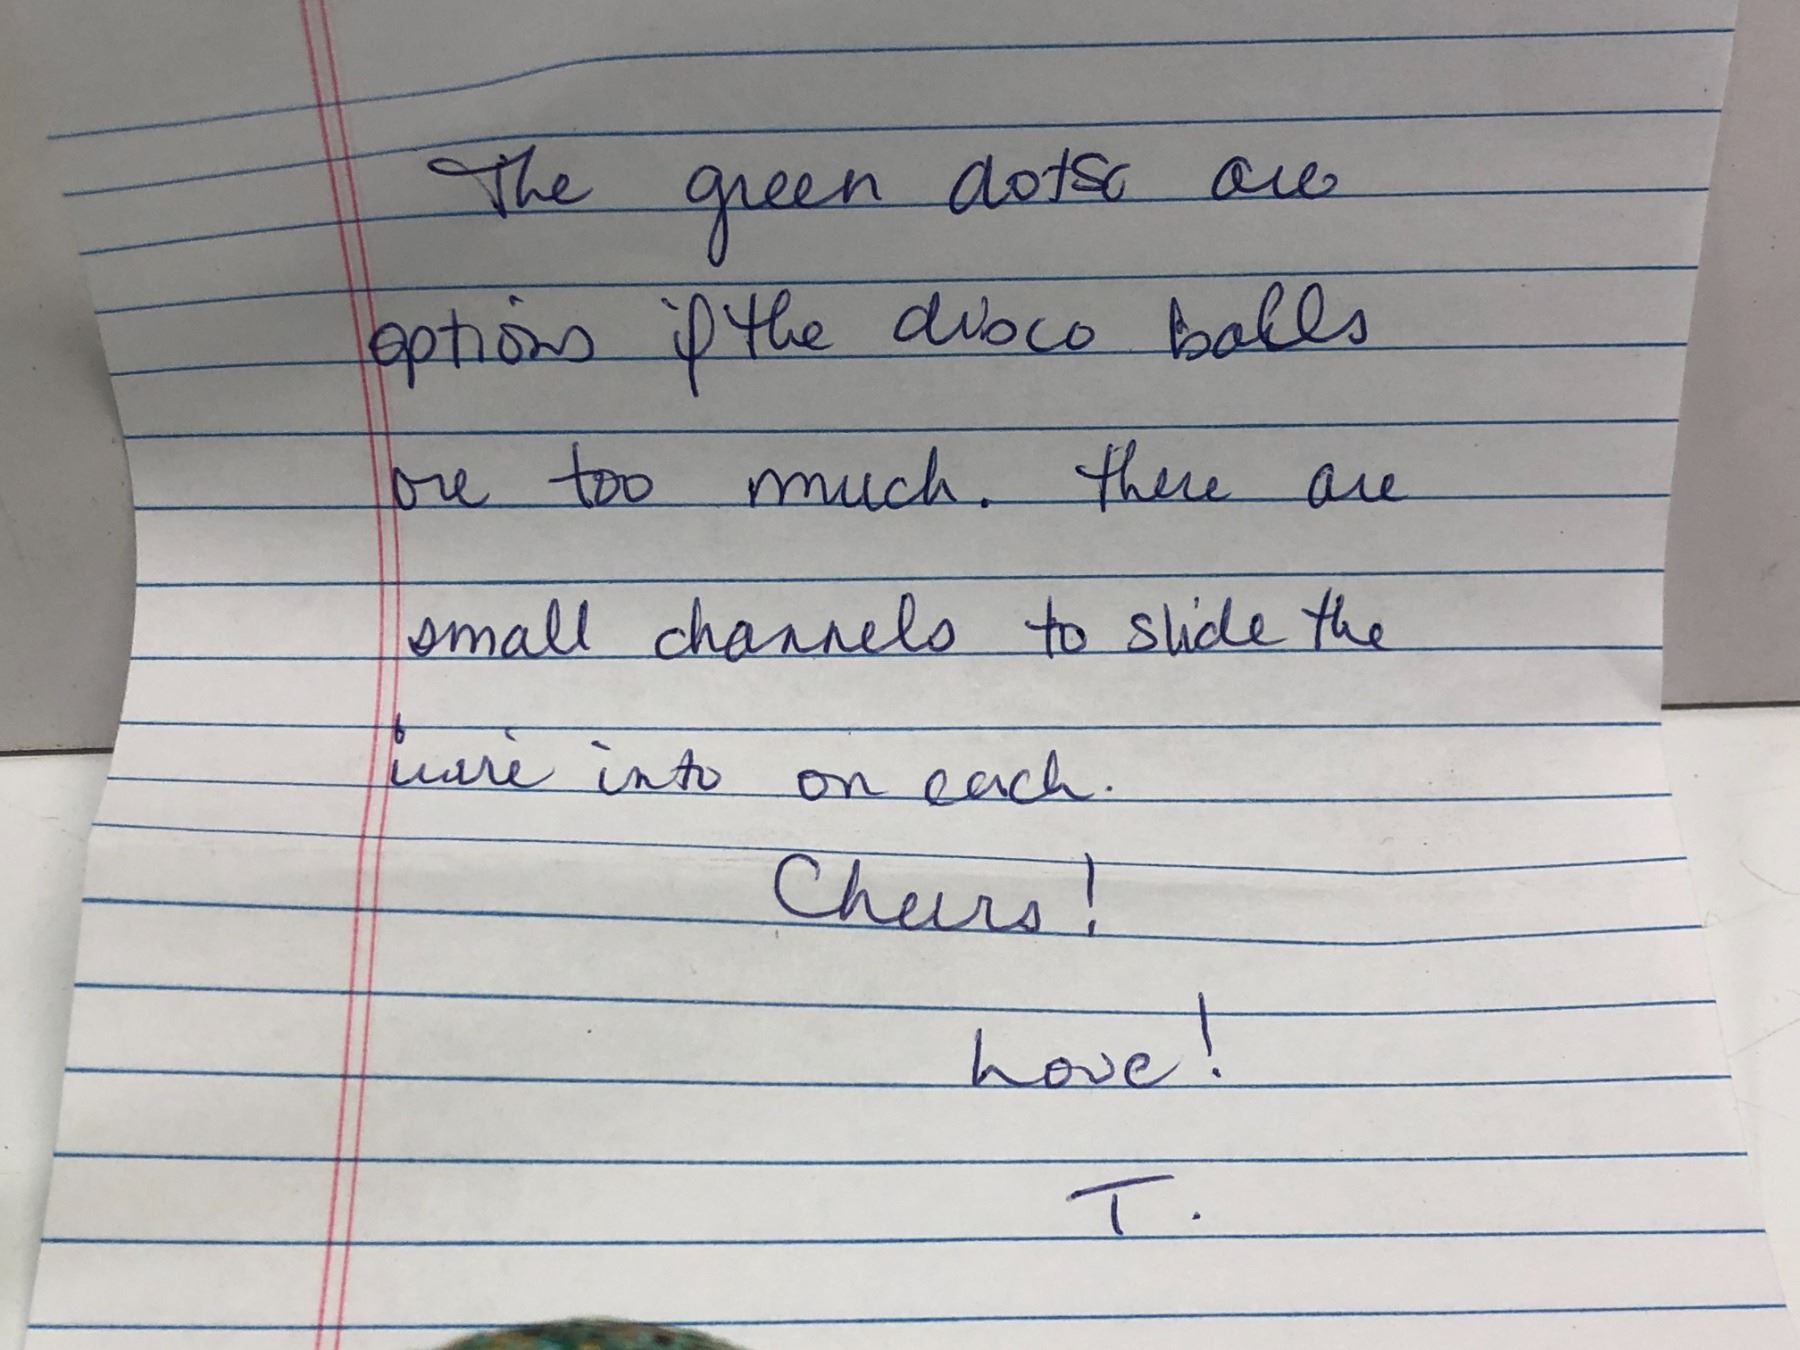 The green dots are
options if the disco balls
are too much. There are
small channels to slide the
wire into on each.
Cheers!
Love!
T.